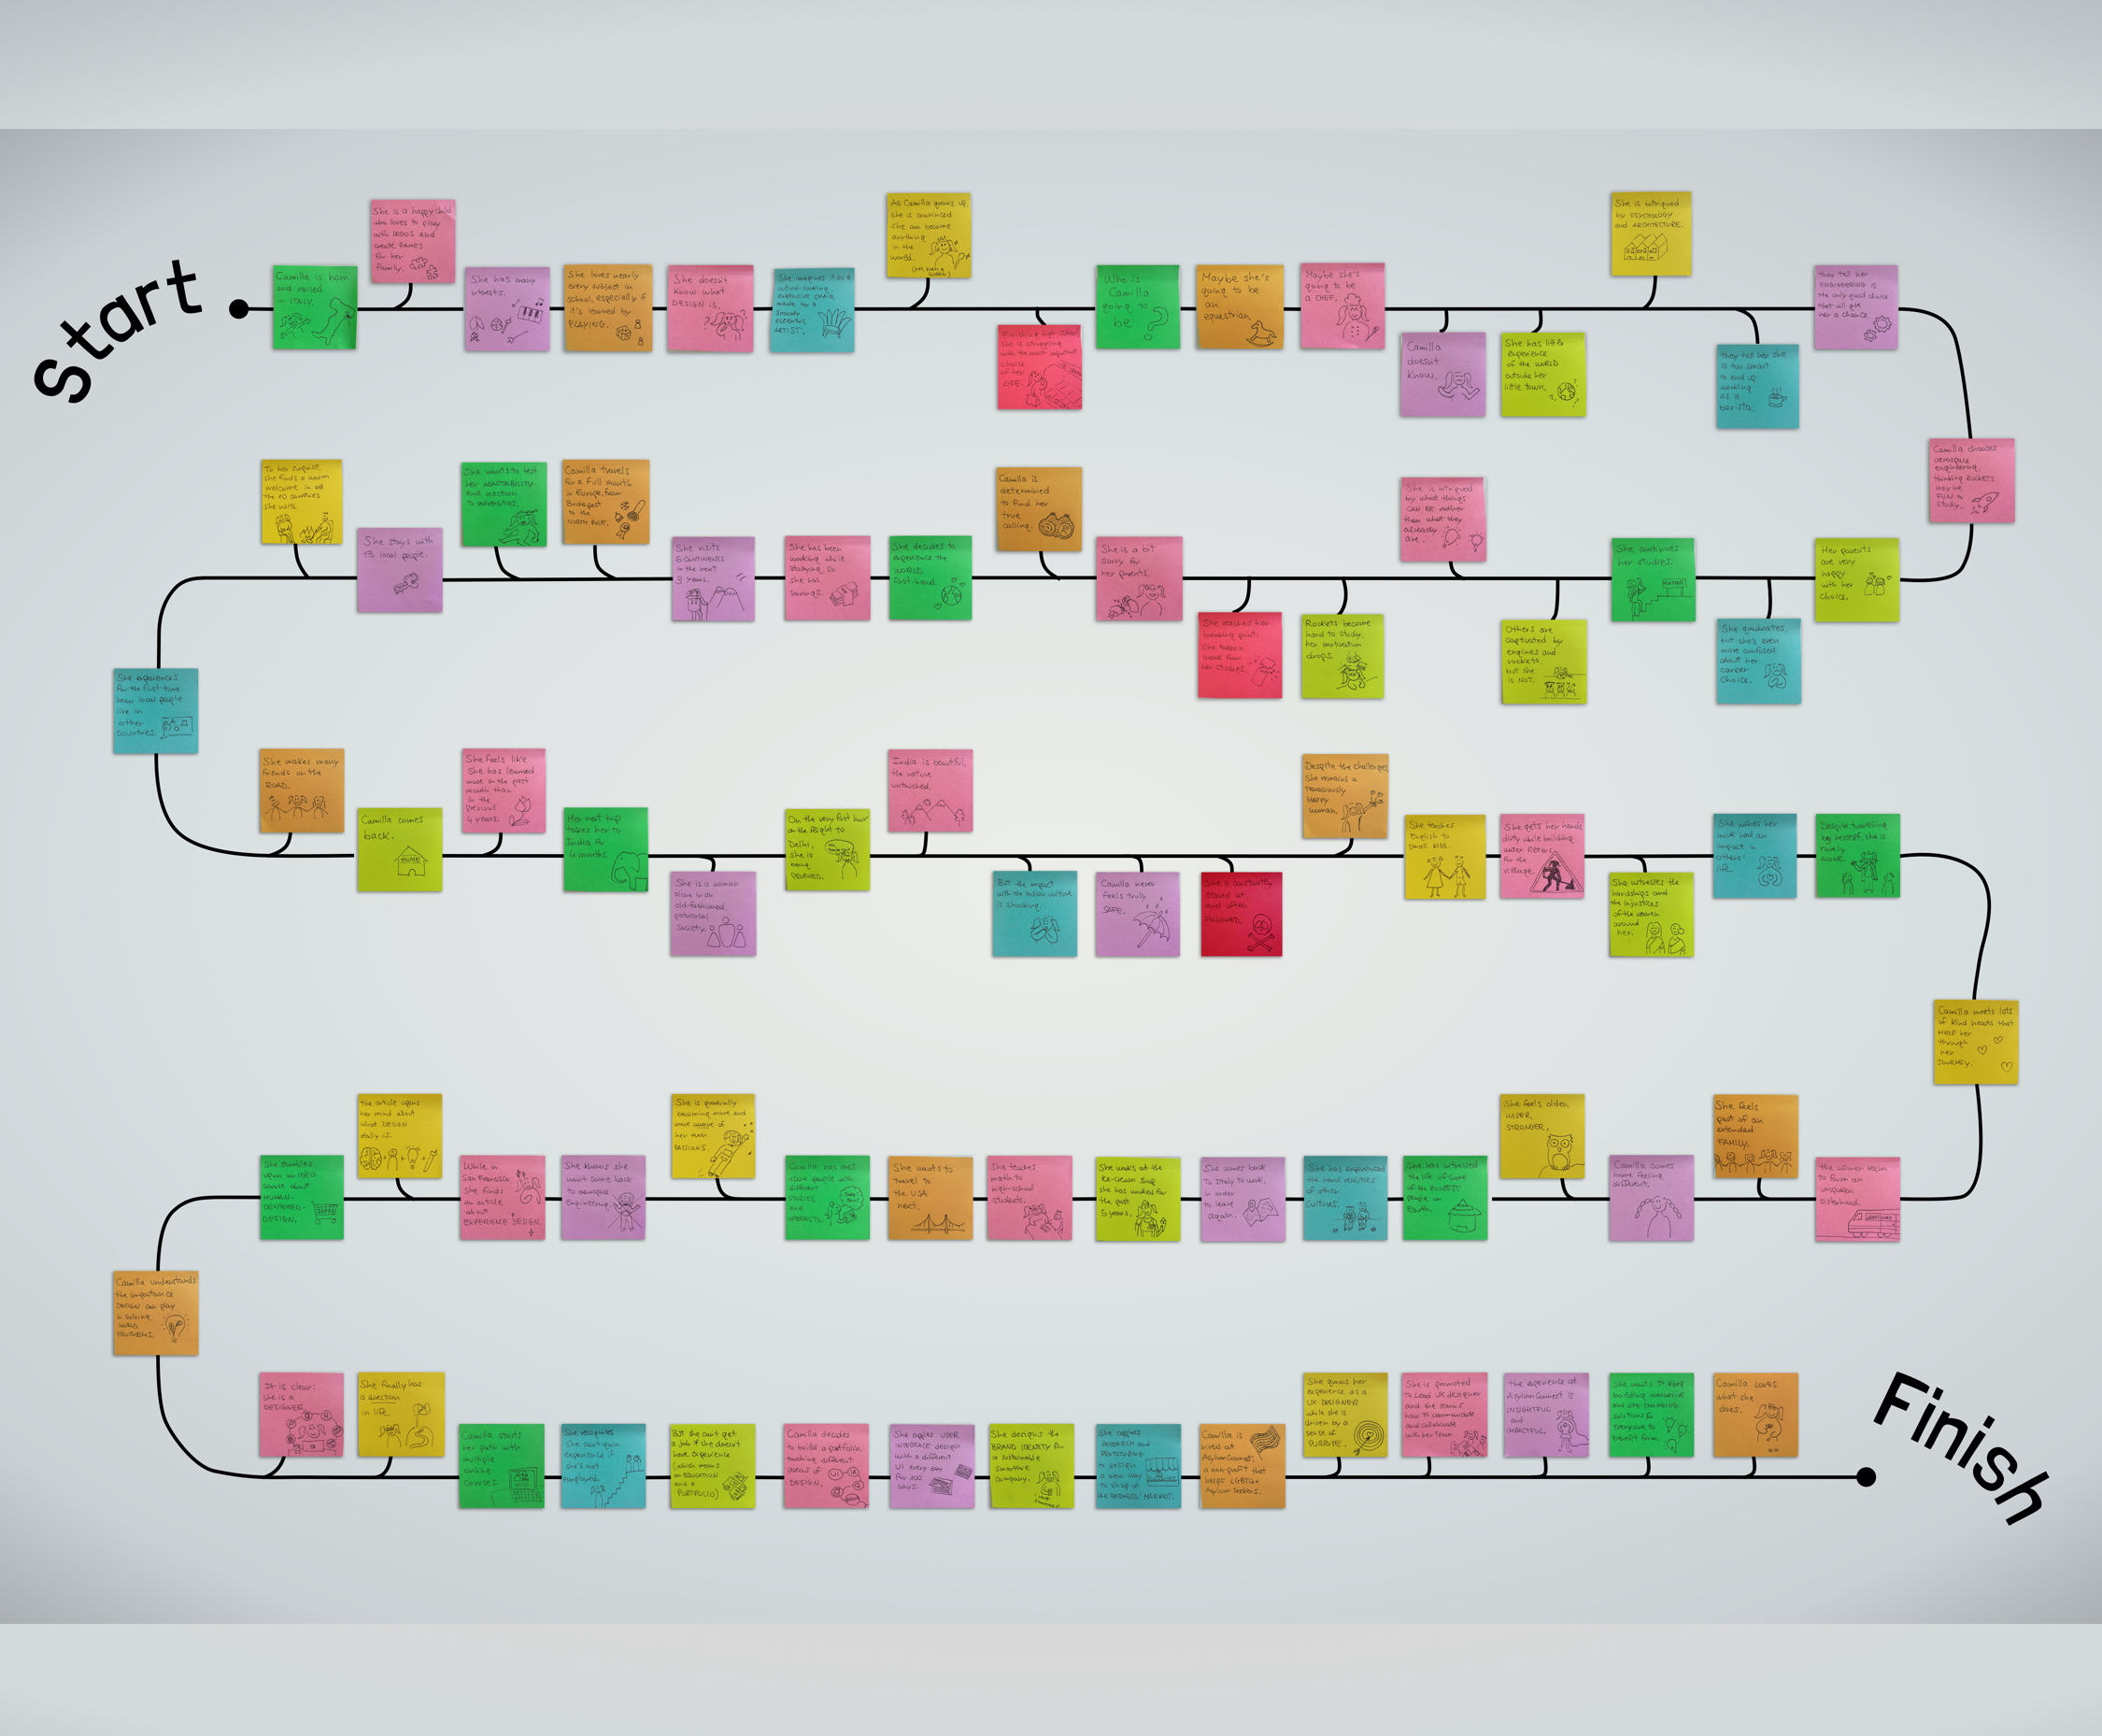 Start
Camilla is born
and raised
in ITALY.
She is a happy child
who loves to play
with LEGOS and
create GAMES
for her
family.
She has many
interests.
She loves nearly
every subject in
school, especially if
it's learned by
PLAYING.
She doesn't
know what
DESIGN is.
She imagines it as a
weird-looking
expensive CHAIR
made by a
snooty
eccentric
ARTIST.
As Camilla grows up,
she is convinced
she can become
anything
in the
world.
Finishing high-school
she is struggling
with the most important
choice
of her
LIFE.
Who is
Camilla
going to
be
?
Maybe she's
going to be
an
equestrian.
Maybe she's
going to be
a CHEF.
Camilla
doesn't
know.
She has little
experience
of the WORLD
outside her
little town.
She is intrigued
by PSYCHOLOGY
and ARCHITECTURE.
they tell her she
is too smart
to end up
working
as a
barista.
they tell her
ENGINEERING is
the only good choice
that will give
her a chance.
Camilla chooses
aerospace
engineering,
thinking ROCKETS
may be
FUN to
study.
Her parents
are very
happy
with her
choice.
She graduates,
but she's even
more confused
about her
career
choice.
She continues
her studies.
Others are
captivated by
engines and
rockets
but she
is NOT.
She is intrigued
by what things
CAN BE rather
than what they
already
are.
Rockets become
hard to study,
her motivation
drops.
She reaches her
breaking point.
She takes a
break from
her studies.
She is a bit
sorry for
her parents.
Camilla is
determined
to find her
true
calling.
She decides to
experience the
WORLD
first-hand.
She has been
working while
studying, so
she has
savings.
She visits
5 CONTINENTS
in the next
3 years.
Camilla travels
for a full month
in Europe, from
Budapest
to the
NORTH POLE.
She wants to test
her ADAPTABILITY
and reaction
to adversities.
She stays with
13 local people.
To her surprise,
she finds a warm
welcome in all
the 10 countries
she visits.
She experiences
for the first time
how local people
live in
other
countries.
She makes many
friends on the
ROAD.
Camilla comes
back.
HOME
She feels like
she has learned
more in the past
month than
in the
previous
4 years.
Her next trip
takes her to
India for
4 months.
She is a woman
alone in an
old-fashioned
patriarcal
society.
On the very first hour
on the flight to
Delhi,
she is
being
PROPOSED.
India is beautiful,
the nature
untouched.
But the impact
with the Indian culture
is shocking.
Camilla never
feels truly
SAFE.
She is constantly
stared at
and often
FOLLOWED.
Despite the challenges,
she remains a
tenaciously
HAPPY
woman.
She teaches
English to
small kids.
She gets her hands
dirty while building
water filters
for the
village.
She witnesses the
hardships and
the injustices
of the women
around
her.
She wishes her
work had an
impact in
others'
life.
Despite traveling
by herself she is
rarely
ALONE.
Camilla meets lots
of kind hearts that
HELP her
through
her
JOURNEY.
the women seem
to form an
unspoken
sisterhood.
She feels
part of an
extended
FAMILY.
Camilla comes
home feeling
different.
She feels older,
WISER,
STRONGER.
She has witnessed
the life of some
of the poorest
people on
Earth.
She has experienced
the hard realities
of other
cultures.
She comes back
to Italy to work,
in order
to leave
again.
She works at the
ice-cream shop
she has worked for
the past
5 years.
She teaches
math to
high-school
students.
She wants to
travel to
the USA
next.
Camilla has met
100+ people with
different
STORIES
and
INTERESTS.
She is gradually
becoming more and
more aware of
her own
PASSIONS.
She knows she
won't come back
to aerospace
Engineering.
While in
San Francisco,
she finds
an article
about
EXPERIENCE DESIGN.
the article opens
her mind about
what DESIGN
really is.
She stumbles
upon an IDEO
course about
HUMAN-
CENTERED-
DESIGN.
Camilla understands
the importance
DESIGN can play
in solving
WORLD
PROBLEMS.
It is clear:
she is a
DESIGNER.
She finally has
a direction
in life.
Camilla starts
her path with
multiple
online
courses.
She recognizes
she can't gain
experience if
she's not
employed.
But she can't get
a job if she doesn't
have experience
(which means
an EDUCATION
and a
PORTFOLIO)
Camilla decides
to build a portfolio,
touching different
areas of
DESIGN.
She applies USER
INTERFACE design
with a different
UI every day
for 100
DAYS.
She designs the
BRAND IDENTITY for
a sustainable
smoothie
company.
She applies
RESEARCH and
PROTOTYPING
to design
a new way
to shop at
the FARMERS' MARKET.
Camilla is
hired at
AsylumConnect,
a non-profit that
helps LGBTQ+
Asylum Seekers.
She grows her
experience as a
UX DESIGNER
while she is
driven by a
sense of
PURPOSE.
She is promoted
to Lead UX designer
and she learns
how to communicate
and collaborate
with her Team.
the experience at
AsylumConnect is
INSIGHTFUL
and
IMPACTFUL.
She wants to keep
building innovative
and LIFE-CHANGING
solutions for
everyone to
benefit from.
Camilla LOVES
what she
does.
Finish